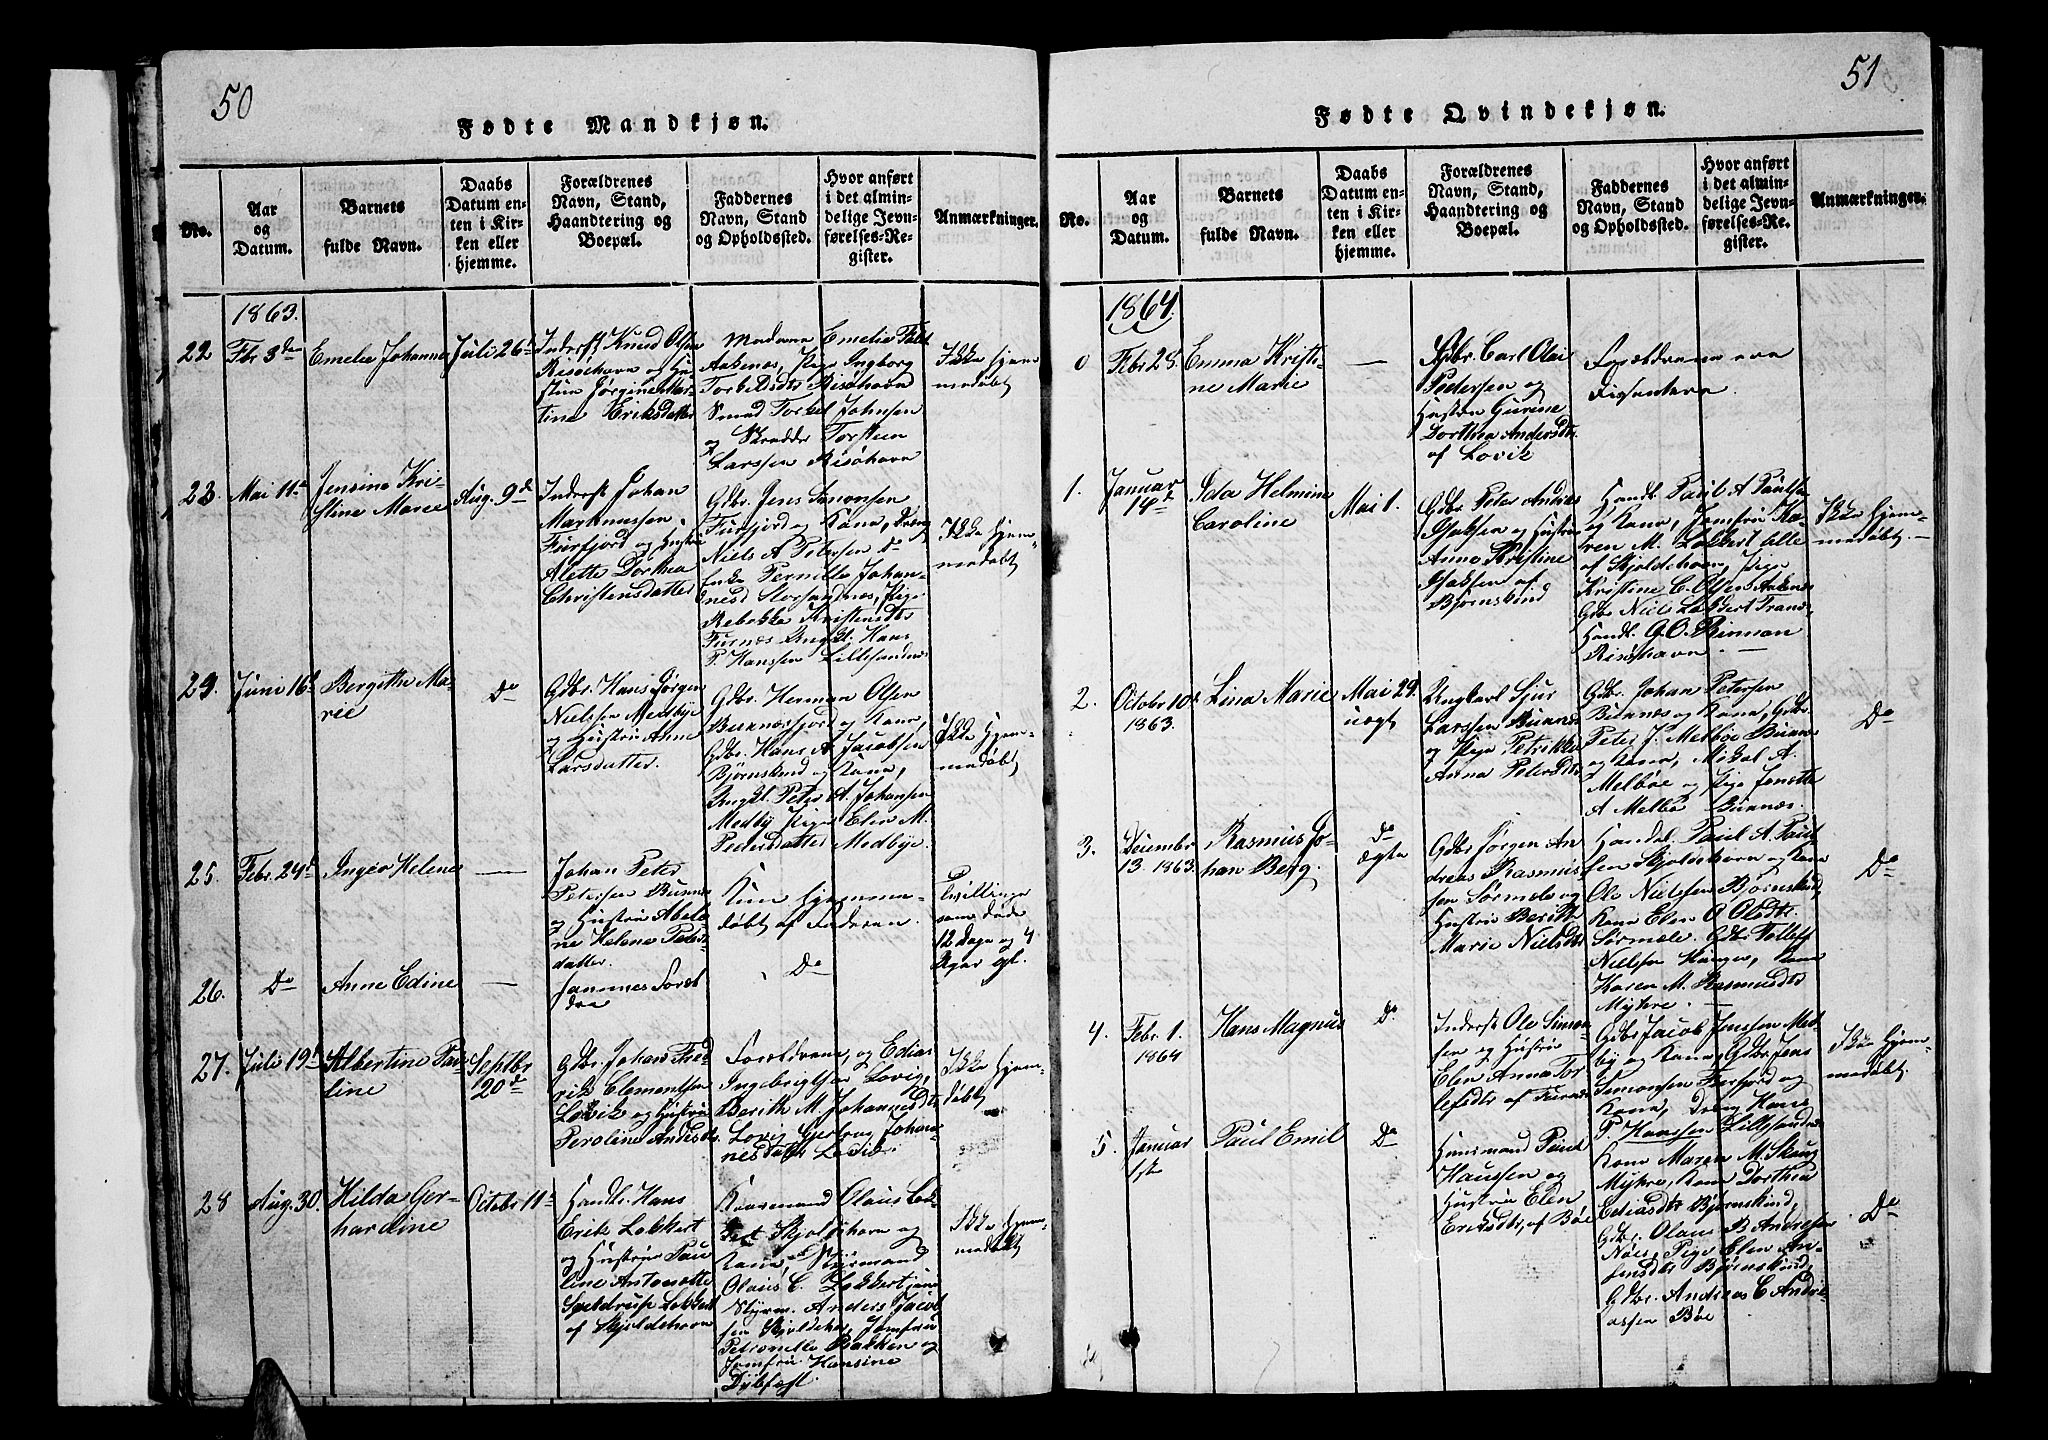 50
Fødte Mandkjøn.
No.
Aar
og
Datum.
Barnets
fulde Navn.
Daabs
Datum en-
ten i Kir-
ken eller
hjemme.
Forældrenes
Navn, Stand,
Haandtering og
Boepæl.
Faddernes
Navn, Stand
og Opholdssted.
Hvor anført
i det almin-
delige Jevn-
førelses-Re-
gister.
Anmærkninger.
1863.
22
Fbr 3de
Emelie Johanne
Juli 26d
Inderst Knud Olsen
Risøehavn og Hu-
stru Jørgine Mar-
tine Eriksdatter
Madame Emelie Falck
Aakenæs, Pige Ingborg
Torbersdtr Risøhavn
Smed Torkel Johnsen
og Skrædder Torsteen
Larssen Risøhavn
Ikke hjem-
medøbt
23.
Mai 11te
Jensine Kri-
stine Marie
Aug. 9d
Inderst Johan
Markussen
Furfjord og Hustru
Alette Dorthea
Christensdatter
Gdbr. Jens Simonsen
Furfjord og Kone, Dreng
Niels A Petersen do
Enke Pernille Johan-
nesd Storsandnes, Pige
Rebekka Kristensdtr
Furnæs Ungkl. Hans
P. Hanssen Lillesandnes
Ikke hjem-
medøbt
24.
Juni 16d
Bergitte Ma-
rie
Do
Gdbr. Hans Jørgen
Nielssen Medbye
og Hustru Anne
Larsdatter.
Gdbr. Herman Olsen
Buknæsfjord og Kone,
Gdbr. Hans A. Jacobsen
Bjørnskind og Kone,
Ungkl. Peter A. Johansen
Medby Pige Elen M.
Pedersdatter Medbye.
Ikke hjem-
medøbt
25.
Febr. 24d
Inger Helene
—
Johan Peter
Petersen Buknæs
og Hustru Abelo-
ne Helene Peters-
datter.
Kun hjemme-
døbt af Faderen.
Tvillinge
som døde
12 Dage og 4
Uger gl.
26.
Do
Anne Edine
—
Sammes Foræl-
dre
Do
27.
Juli 19d
Albertine Pau-
line
Septbr
20de
Gdbr. Johan Fred-
rik Clementsen
Lovik og Hustru
Peroline Andersdtr
Forældrene, og Edias
Ingebrigtsen Lovig,
Berith M. Johannesdtr
Lovig Gjertrug Johan-
nesdatter Lovik.
Ikke hjem-
døbt
28
Aug. 30.
Hilda Ger-
hardine
October 11te
Handl. Hans
Erik Lokkert
og Hustru Pau-
line Antonette
Lokkert
af Skjoldehavn
Kaarmand Olaus Lok-
kert Skjoldehavn og
Kone, Styrmand
Olaus C. Lokkert
Styrm. Anders Jacob-
sen Skjoldehavn, Jomfru
Petronelle Bakken og
Jomfru Hansine
Dybfest.
Ikke hjem-
medøbt
51
Fødte Qvindekjøn.
No.
Aar
og
Datum.
Barnets
fulde Navn.
Daabs
Datum en-
ten i Kir-
ken eller
hjemme.
Forældrenes
Navn, Stand,
Haandtering og
Boepæl.
Faddernes
Navn, Stand
og Opholdssted.
Hvor anført
i det almin-
delige Jevn-
førelses-Re-
gister.
Anmærkninger.
1864.
0
Febr 28.
Emma Kristi-
ne Marie
—
Gdbr. Carl Olai
Pedersen og
Hustru Gurine
Dorthea Andersdtr.
af Lovik
Forældrene ere
Dissentere.
1.
Januar
19d
Ida Helmine
Caroline
Mai 1.
Gdbr Peter Andreas
Isaksen og Hustru
Anne Kristine
Isaksen af
Bjørnskind
Handl. Paul A Paulsen
og Kone, Jomfru Ka-
ren M. Lokkert alle
af Skjoldehavn, Pige
Kristine C. Olsen Aakenæs
Gdbr Niels Lokkert Tranæs
Handl. G.O. Rinnan
Risøhavn —
Ikke hjem-
medøbt. —
2.
October 10d
1863.
Lina Marie
Mai 29.
uægt
Ungkarl Sjur
Larssen Buknæs
og Pige Petrikke
Anna Petersdtr
Gdbr. Johan Petersen
Buknæs og Kone, Gdbr.
Peter J. Melbøe Buknæs
og Kone, Mikal A.
Melbøe og Pige Jonette
A Melbøe Buknæs.
Do
3.
December
13. 1863.
Rasmus Jo-
han Berg.
Do
ægte
Gdbr Jørgen An-
dreas Rasmus-
sen Sørmele og
Hustru Berith
Marie Nielsdtr
Handel. Paul A. Paul-
sen Skjoldehavn og Kone
Ole Nielssen Bjørnskind,
Kone Elen O Olsdtr.
Sørmele. Gdbr. Tollef
Nielsen Kone
Karen M. Rasmusdtr
Myhre. —
Do
4.
Febr. 1.
1864
Hans Magnus
Do
Inderst Ole Simon-
sen og Hustru
Elen Anna Tor-
lefsdtr af Furnæs
Gdbr Jacob Jenssen Med-
by og Kone, Gdbr Jens
Simonsen Furfjord og
Kone, Dreng Hans
P. Hanssen Lillesandnes
Ikke hjem-
medøbt.
5.
Januar
1ste
Paul Emil
Do
Huusmand Paul
Hanssen og
Hustru Elen
Eriksdtr, af Bøe
Kone Maren M. Skaug
Myhre, Kone Dorthea
Ediasdtr Bjørnskind,
Gdbr. Olaus B Andresen
Nøss, Pige Elen An-
fensdtr Bjørnskind,
Gdbr. Andreas C Andre-
assen Bøe
Do